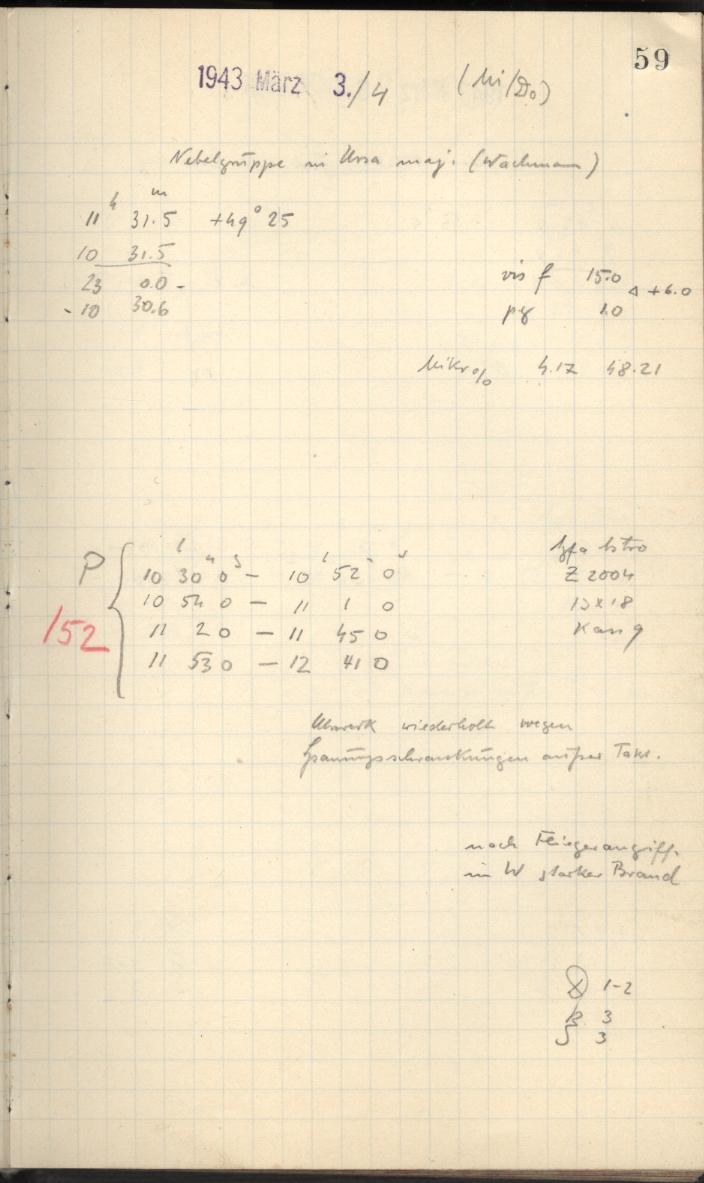 59
1943 März 3./4 (Mi/Do)
Nebelgruppe in Ursa maj. (Wachmann)
11h 31m.5 +49° 25
10 31.5
23 0.0 -
- 10 30.6
vis f 15.0
Δ +6.0
pg 1.0
Mikro 4.17 48.21
P
152
10 30 0 - 10 52 0
10 54 0 - 11 1 0
11 2 0 - 11 45 0
11 53 0 - 12 41 0
Agfa Astro
Z 2004
13x18
Kass 9
Uhrwerk wiederholt wegen
Spannungsschwankungen außer Takt.
nach Fliegerangriff
im W starker Brand
1-2
R 3
S 3